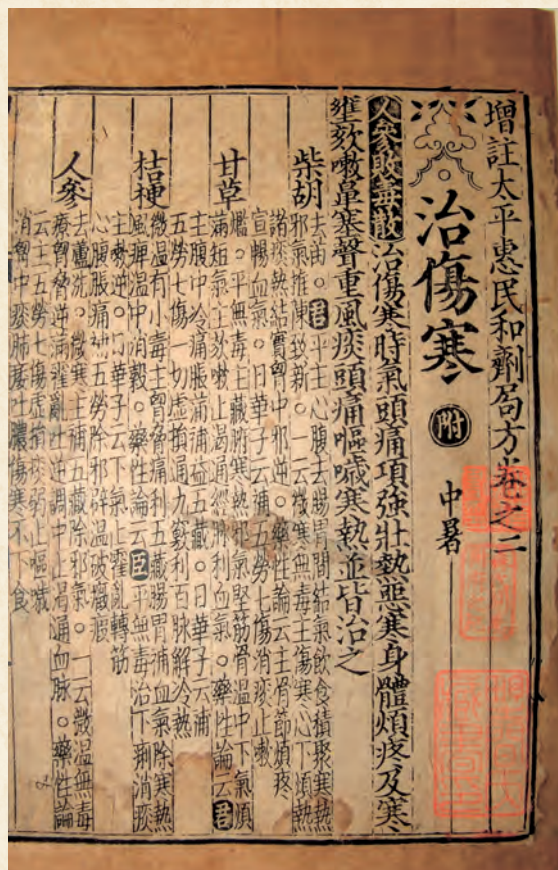 增註太平惠民和劑局方卷之二
治傷寒 附 中暑
人參敗毒散 治傷寒時氣頭痛項強壯熱惡寒身體煩疼及寒
壅欬嗽鼻塞聲重風痰頭痛嘔噦寒熱並皆治之
柴胡 去苗。君平主心腹去腸胃間結氣飲食積聚寒熱
邪氣推陳致新。一云微寒無毒主傷寒心下煩熱
諸痰熱結實胸中邪逆。藥性論云主骨節煩疼
宣暢血氣。日華子云補五勞七傷消痰止嗽
甘草 爁。平無毒主藏腑寒熱邪氣堅筋骨溫中下氣煩
滿短氣主欬嗽止渴通經脉利血氣。藥性論云君
主腹中冷痛脹滿補益五藏。日華子云補
五勞七傷一切虛損通九竅利百脉解冷熱
桔梗 微溫有小毒主胸脅痛利五藏腸胃補血氣除寒熱
風痺溫中消穀。藥性論云臣平無毒治下痢消痰
主欬逆。日華子云下氣止霍亂轉筋
心腹脹痛補五勞除邪辟溫破癥瘕
人參 去蘆洗。微寒主補五藏除邪氣。一云微溫無毒
療胸脅逆滿霍亂吐逆調中止渴通血脉。藥性論
云主五勞七傷虛損痰弱止嘔噦
消胸中痰肺痿吐膿傷寒不下食